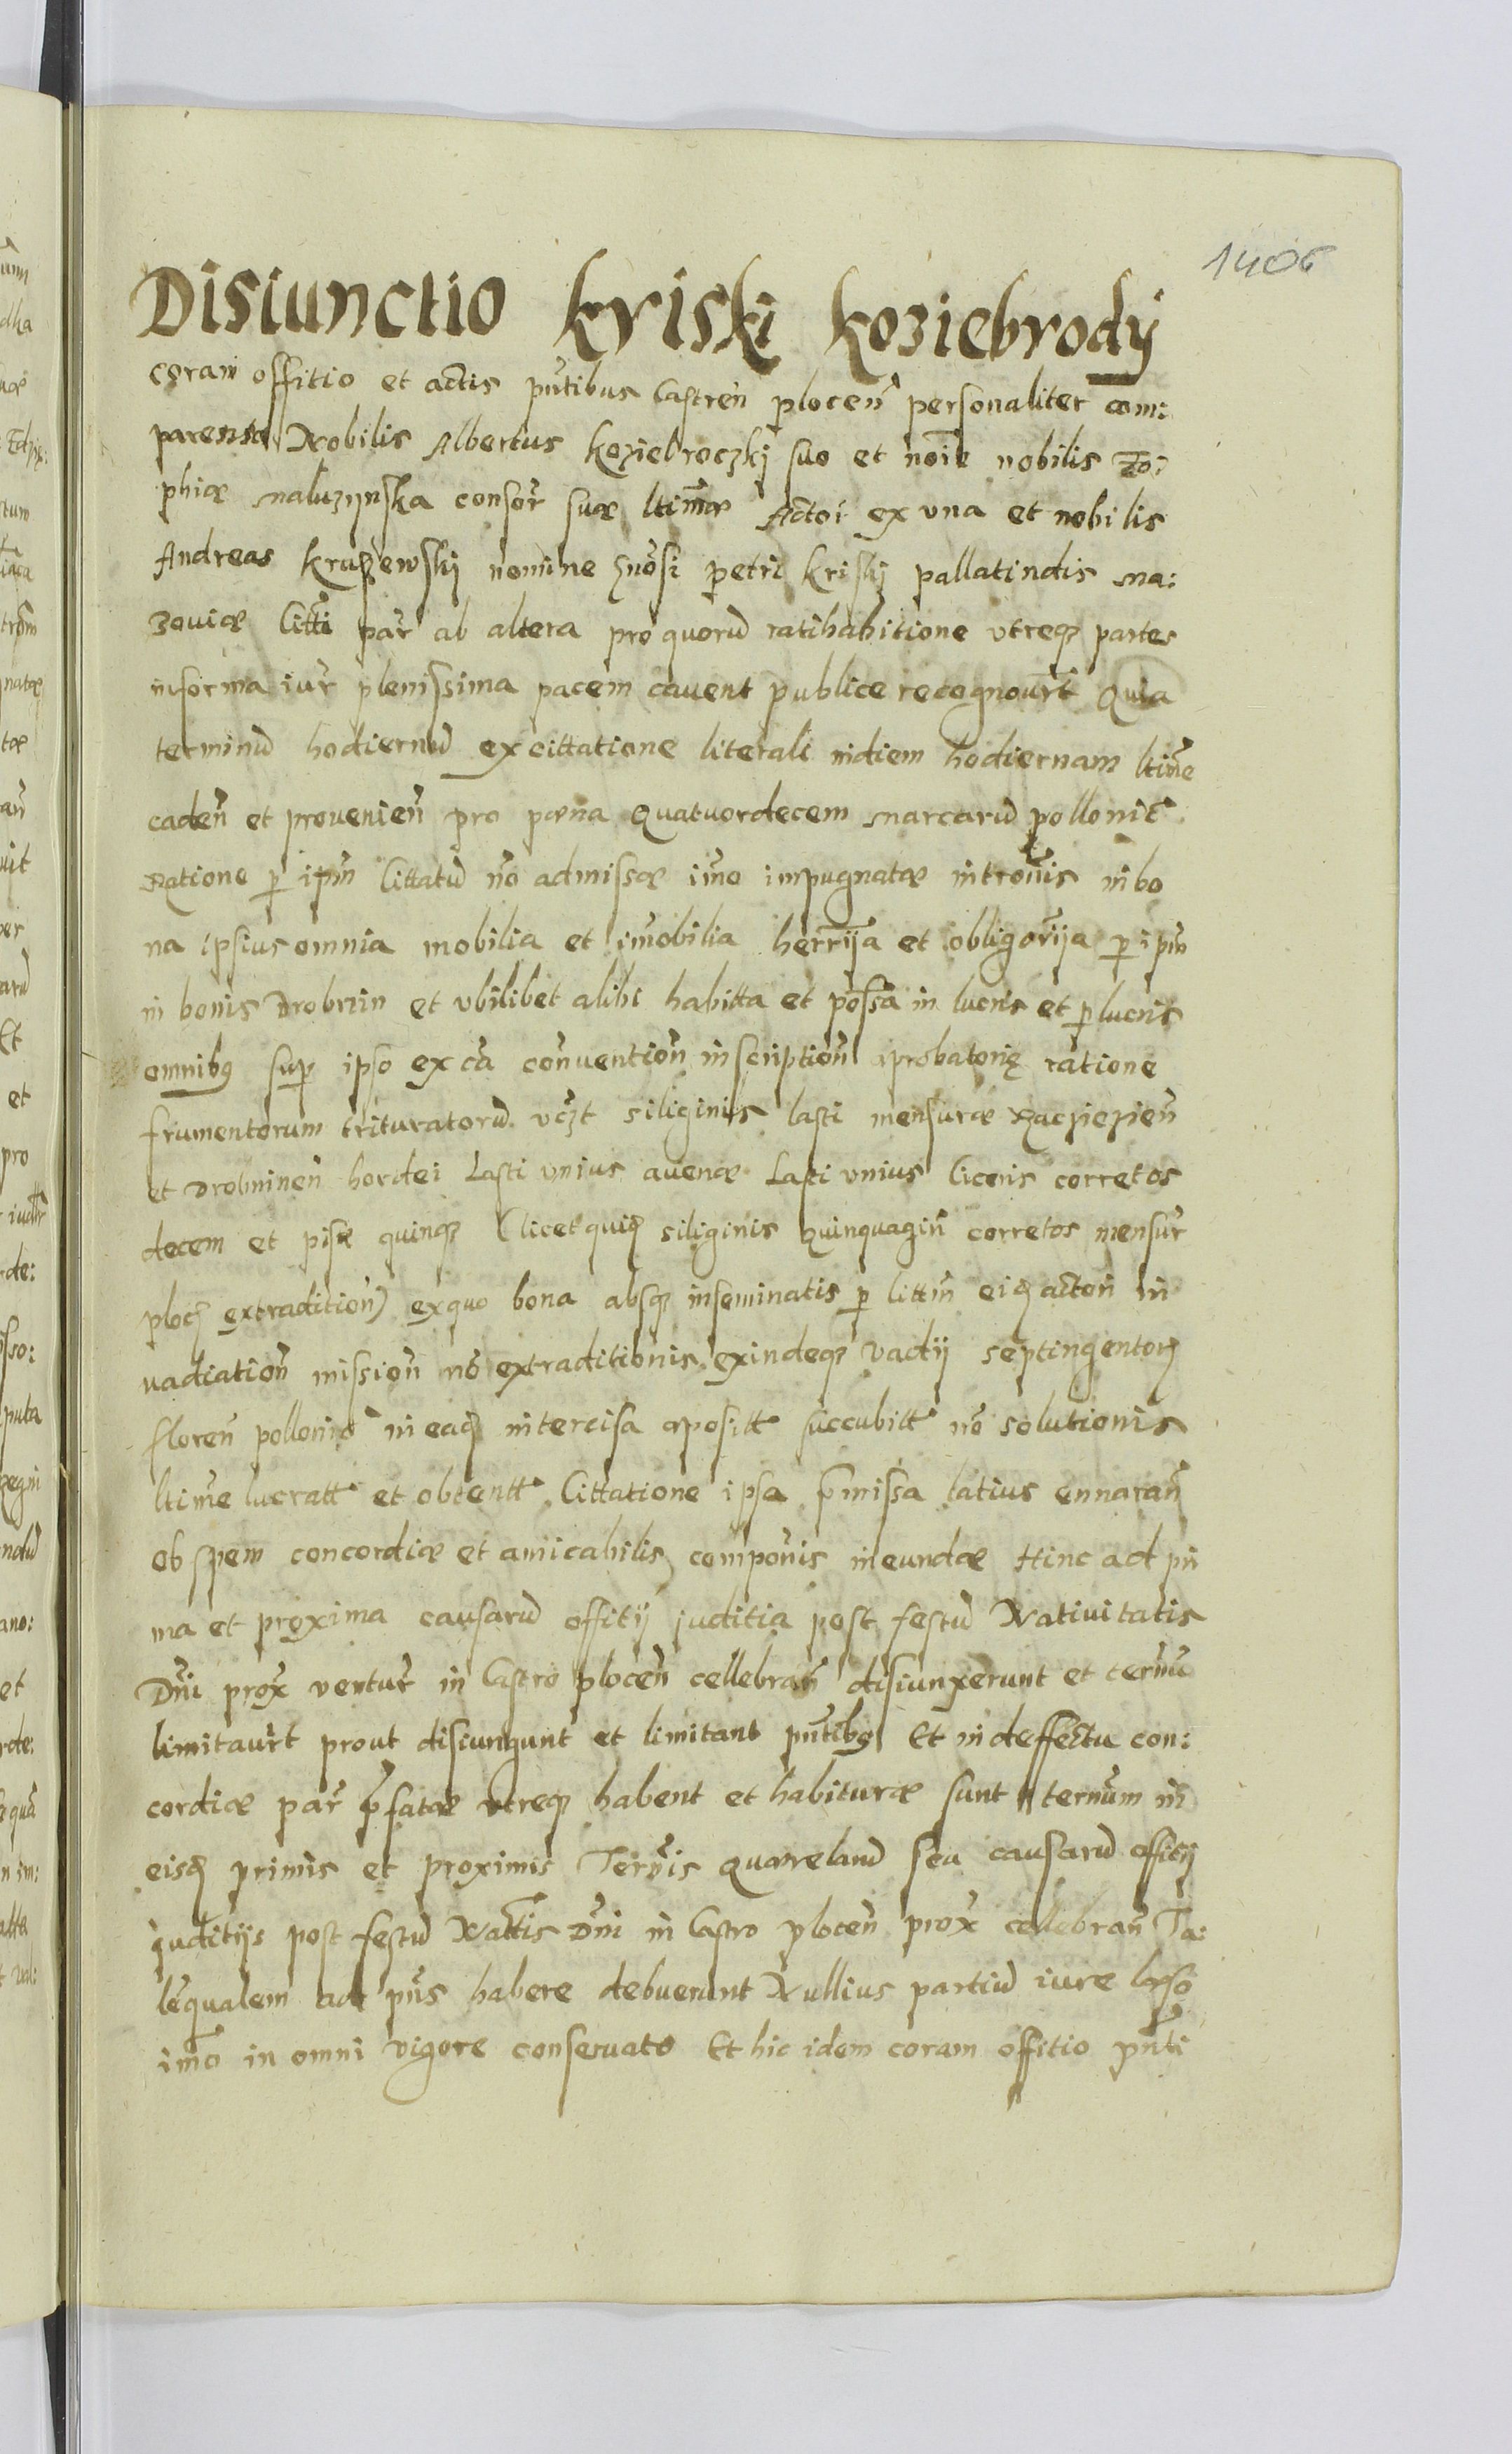 1406
Disiunctio Kriski Koziebrodÿ
coram offitio et actis pñtibus Castreñ ploceñ personaliter com:
parens Nobilis Albertus Koziebroczkj suo et noĩe nobilis Zo:
phiæ Maluzynska consor̃ suæ ltimæ Actoř ex vna et nobilis
Andreas Kraszewskj nomine gnosi petri Kriskj pallatindis Ma:
zoviæ Citti par̃ ab altera pro quorũ ratihabitione vtreqz partes
in forma iur̃ plenissima pacem cavent publice recognour̃t Quia
terminũ hodiernũ ex cittatione literali in diem hodiernam ltime
cadeñ et provenieñ pro pæna Quatuordecem Marcarũ polloniĉ
Ratione p ipm̃ Cittatũ nõ admissæ im̃o impugnatæ introm̃is in bo
na ipsius omnia mobilia et im̃obilia herrija et obligorija p ipm̃
in bonis Drobnin et vbilibet alibi habitta et possa in lucris et plucris
omnibq sup ipso ex cã conventioñ inscriptioñ aprobatoriæ ratione
frumentorum trituratorũ vczt siliginis lasti mensuræ Racziezieñ
et Drobnineñ hordei Lasti vnius avenæ Lasti vnius Ciceris corretos
decem et pisæ quinqz (licet quidẽ siliginis Quinquagiñ corretos mensur̃
ploceñ extraditioñ) ex quo bona absqz inseminatis p Cittm̃ eidẽ actori in
vadiatioñ missioñ nõ extraditionis exindeqz vadij septingentorũ
floreñ polloniĉ in eadẽ intercisa apositt succubitt nõ solutionis
ltime lucratt et obtentt Cittatione ipsa p̃missa latius ennaran̄
ob spem concordiæ et amicabilis componis ineundæ Hinc ad pri
ma et proxima causarũ offitij juditia post festũ Nativitatis
Dñi prox̃ ventur̃ in Castro ploceñ cellebrañ disiunxerunt et ter̃nũ
limitaur̃t prout disiungunt et limitant pñtibq Et in deffectu con:
cordiæ par̃ p̃fatæ vtreqz habent et habituræ sunt ternũm in
eisdẽ primis et proximis Ter̃is Quærelarũ seu causarũ offitij
juditijs post festũ Nattis Dñi in Castro ploceñ prox̃ cellebrañ Ta:
lẽqualem ad pñs habere debuerunt Nullius partiũ iure læso
im̃o in omni vigore conseruato Et hic idem coram offitio pñti